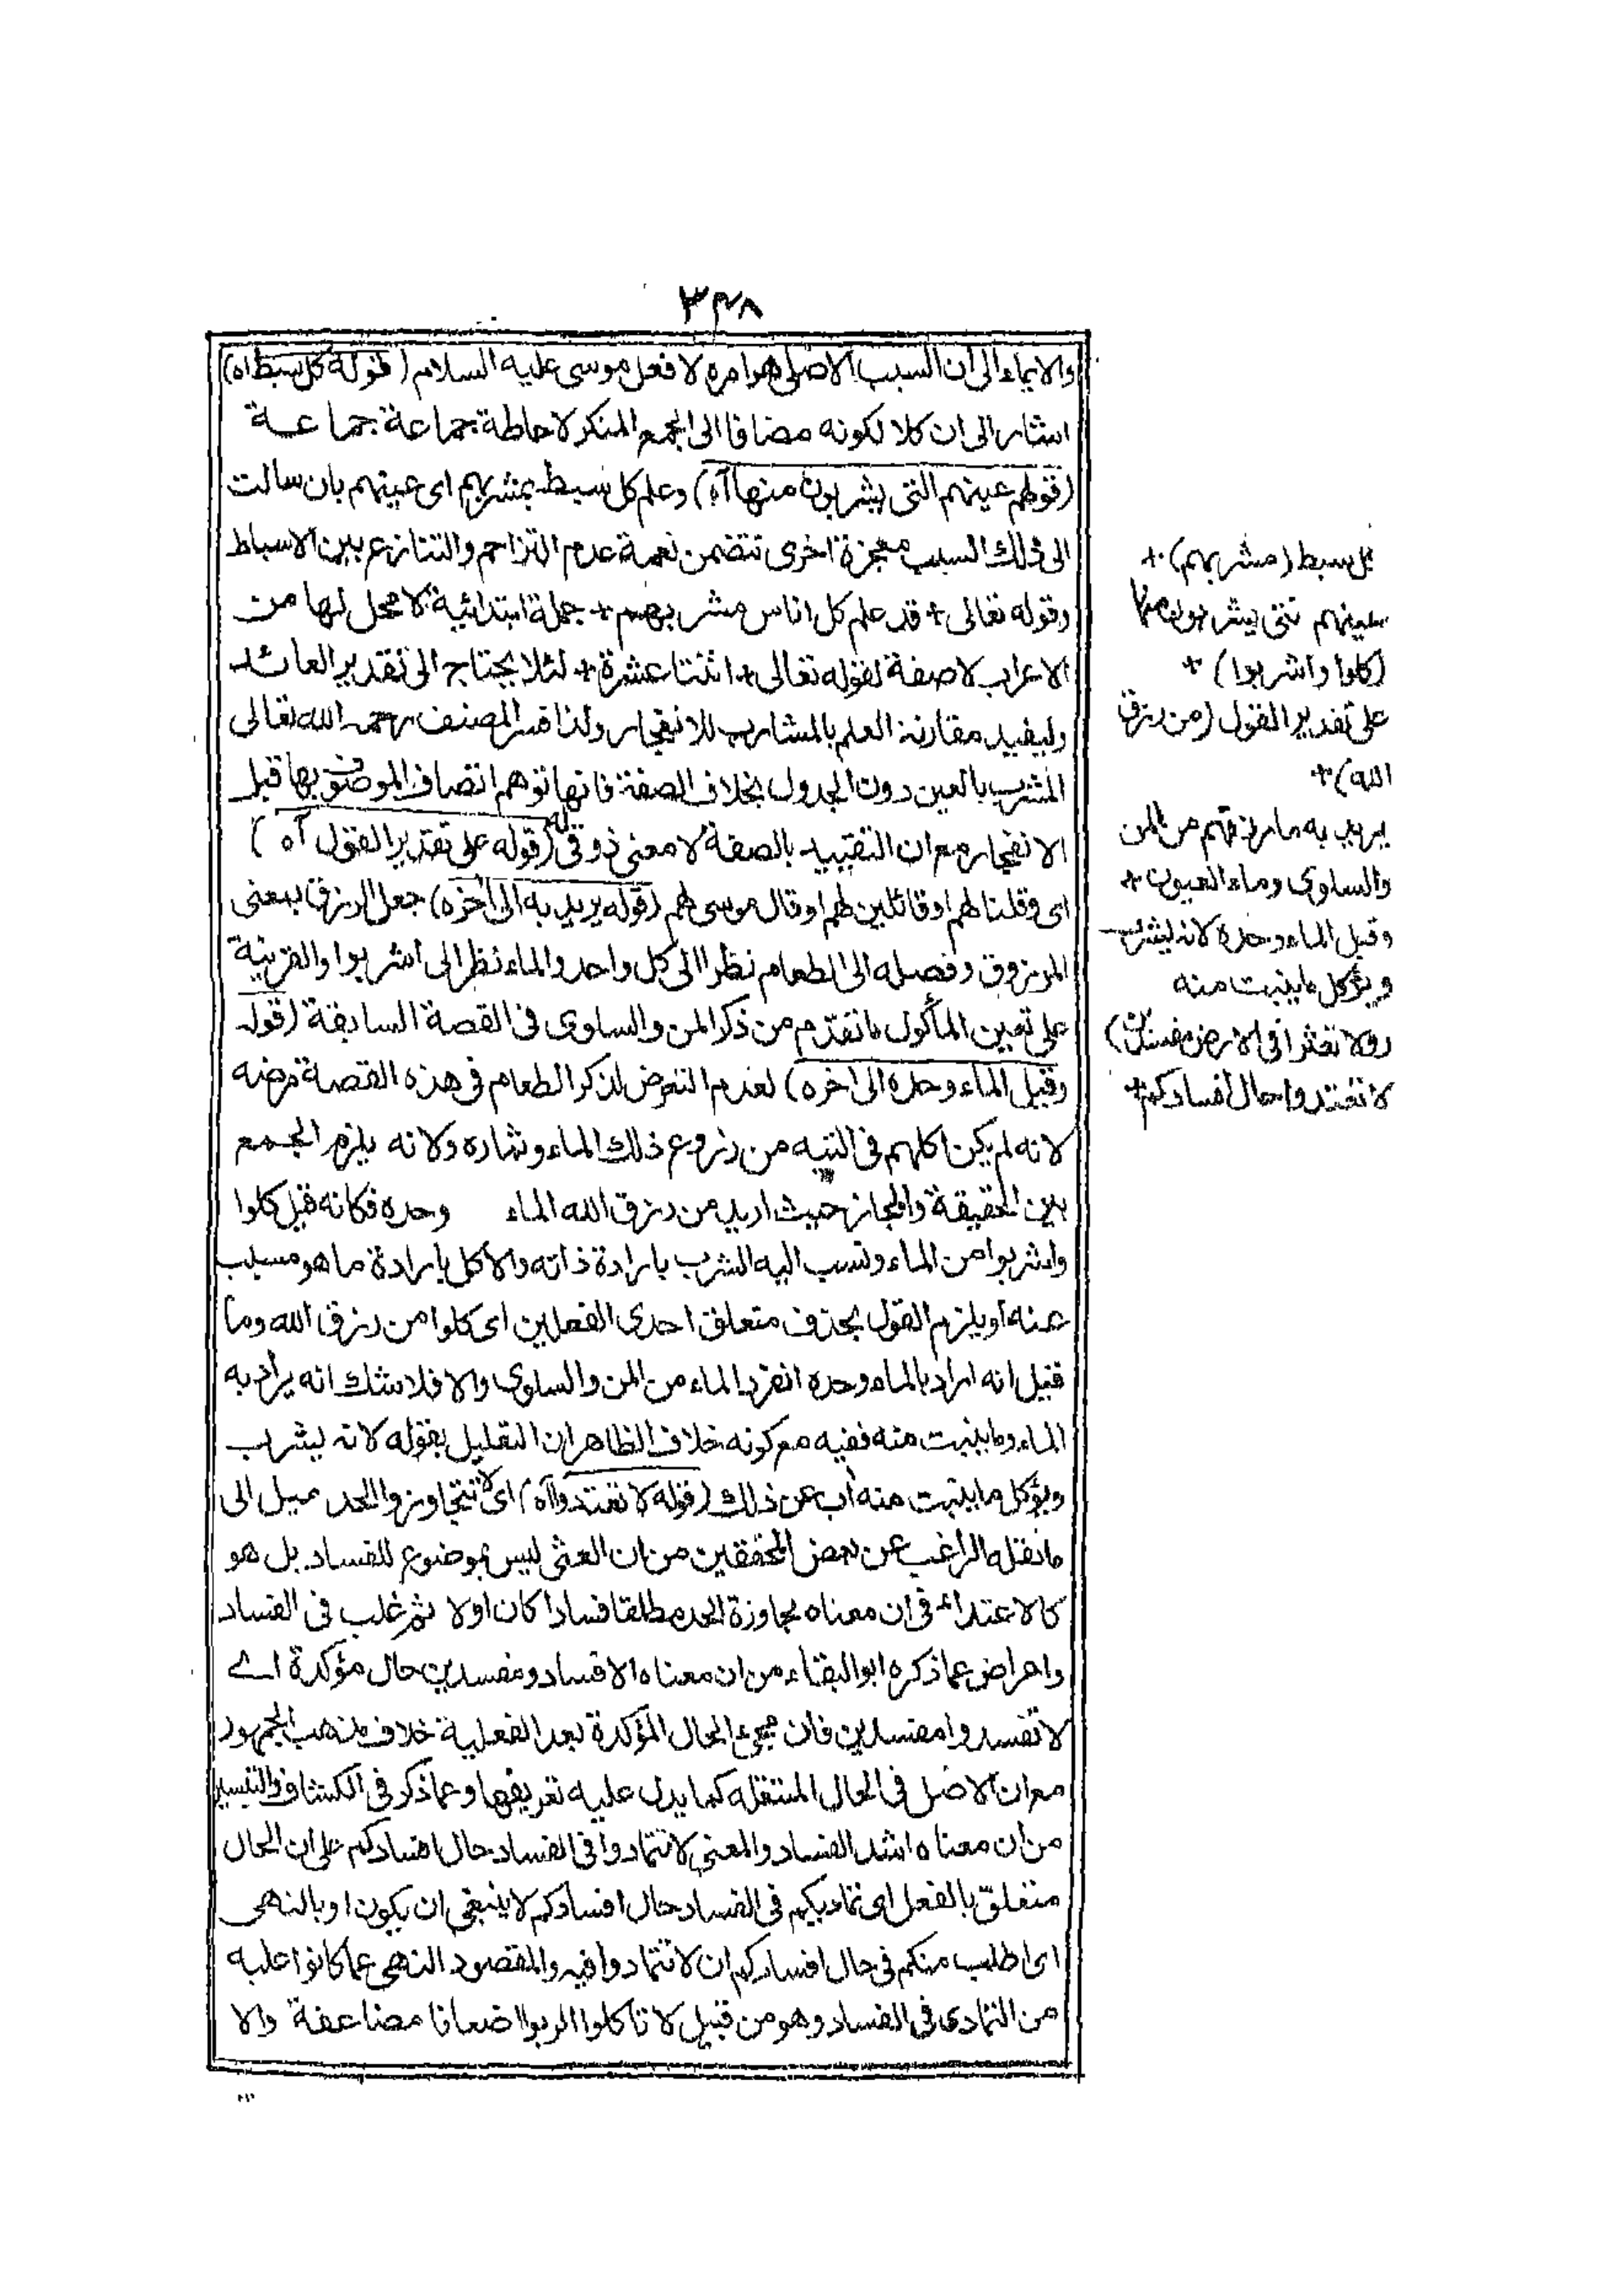 ٣٢٨
والايماء الى ان السبب الاصلى هو امره لا فعل موسى عليه السلام (قوله كل سبط اه)
اشار الى ان كلا لكونه مضافا الى الجمع المنكر لاحاطة جماعة جماعة
(قولهم عينهم التى يشربون منها آه) وعلم كل سبط بمشربهم اى عينهم بان سالت
الى ذلك السبب معجزة اخرى تتضمن نعمة عدم التزاحم والتنازع بين الاسباط
وقوله تعالى + قد علم كل اناس مشربهم + جملة ابتدائية لا محل لها من
الاعراب لا صفة لقوله تعالى + اثنتا عشرة + لئلا يحتاج الى تقدير العائد
وليفيد مقارنة العلم بالمشارب للانفجار ولذا فسر المصنف رحمه الله تعالى
المشرب بالعين دون الجدول بخلاف الصفة فانها توهم اتصاف الموصوف بها قبل
الانفجار مع ان التقييد بالصفة لا معنى له ذوقى (قوله على تقدير القول آه)
اى وقلنا لهم او قائلين لهم او قال موسى لهم (قوله يريد به الى اخره) جعل الرزق بمعنى
المرزوق وفصله الى الطعام نظرا الى كل واحد والماء نظرا الى اشربوا والقرينة
على تعين المأكول ما تقدم من ذكر المن والسلوى فى القصة السابقة (قوله
وقيل الماء وحده الى اخره) لعدم التعرض لذكر الطعام فى هذه القصة مرضه
لانه لم يكن اكلهم فى التيه من زروع ذلك الماء وثماره ولانه يلزم الجمع
بين الحقيقة والمجاز حيث اريد من رزق الله الماء وحده فكانه قيل كلوا
واشربوا من الماء ونسب اليه الشرب بارادة ذاته والاكل بارادة ما هو مسبب
عنه او يلزم القول بحذف متعلق احدى الفعلين اى كلوا من رزق الله وما
قيل انه اراد بالماء وحده انفرد الماء من المن والسلوى والا فلا شك انه يراد به
الماء وما ينبت منه ففيه مع كونه خلاف الظاهر ان التعليل بقوله لانه يشرب
ويؤكل ما ينبت منه آب عن ذلك (قوله لا تعتدوا آه) اى لا تتجاوزوا الحد ميل الى
ما نقله الراغب عن بعض المحققين من ان العثى ليس بموضوع للفساد بل هو
كالاعتداء فى ان معناه مجاوزة الحد مطلقا فسادا كان اولا ثم غلب فى الفساد
واعراض عما ذكره ابو البقاء من ان معناه الافساد ومفسدين حال مؤكدة اے
لا تفسدوا مفسدين فان مجئ الحال المؤكدة بعد الفعلية خلاف مذهب الجمهور
مع ان الاصل فى الحال المنتقلة كما يدل عليه تعريفها وعما ذكر فى الكشاف والتيسير
من ان معناه اشد الفساد والمعنى لا تتمادوا فى الفساد حال افسادكم على ان الحال
متعلق بالفعل اى تماديكم فى الفساد حال افسادكم لا ينبغى ان يكون او بالنهى
اى اطلب منكم فى حال افسادكم ان لا تتمادوا فيه والمقصود النهى عما كانوا عليه
من التمادى فى الفساد وهو من قبيل لا تاكلوا الربوا اضعافا مضاعفة والا
كل سبط (مشربهم) +
عينهم التى يشربون منها
(كلوا واشربوا) +
على تقدير القول (من رزق
الله) +
يريد به ما رزقهم من المن
والسلوى وماء العيون +
وقيل الماء وحده لانه يشرب
ويؤكل ما ينبت منه
(ولا تعثوا فى الارض مفسدين)
لا تعتدوا حال افسادكم +